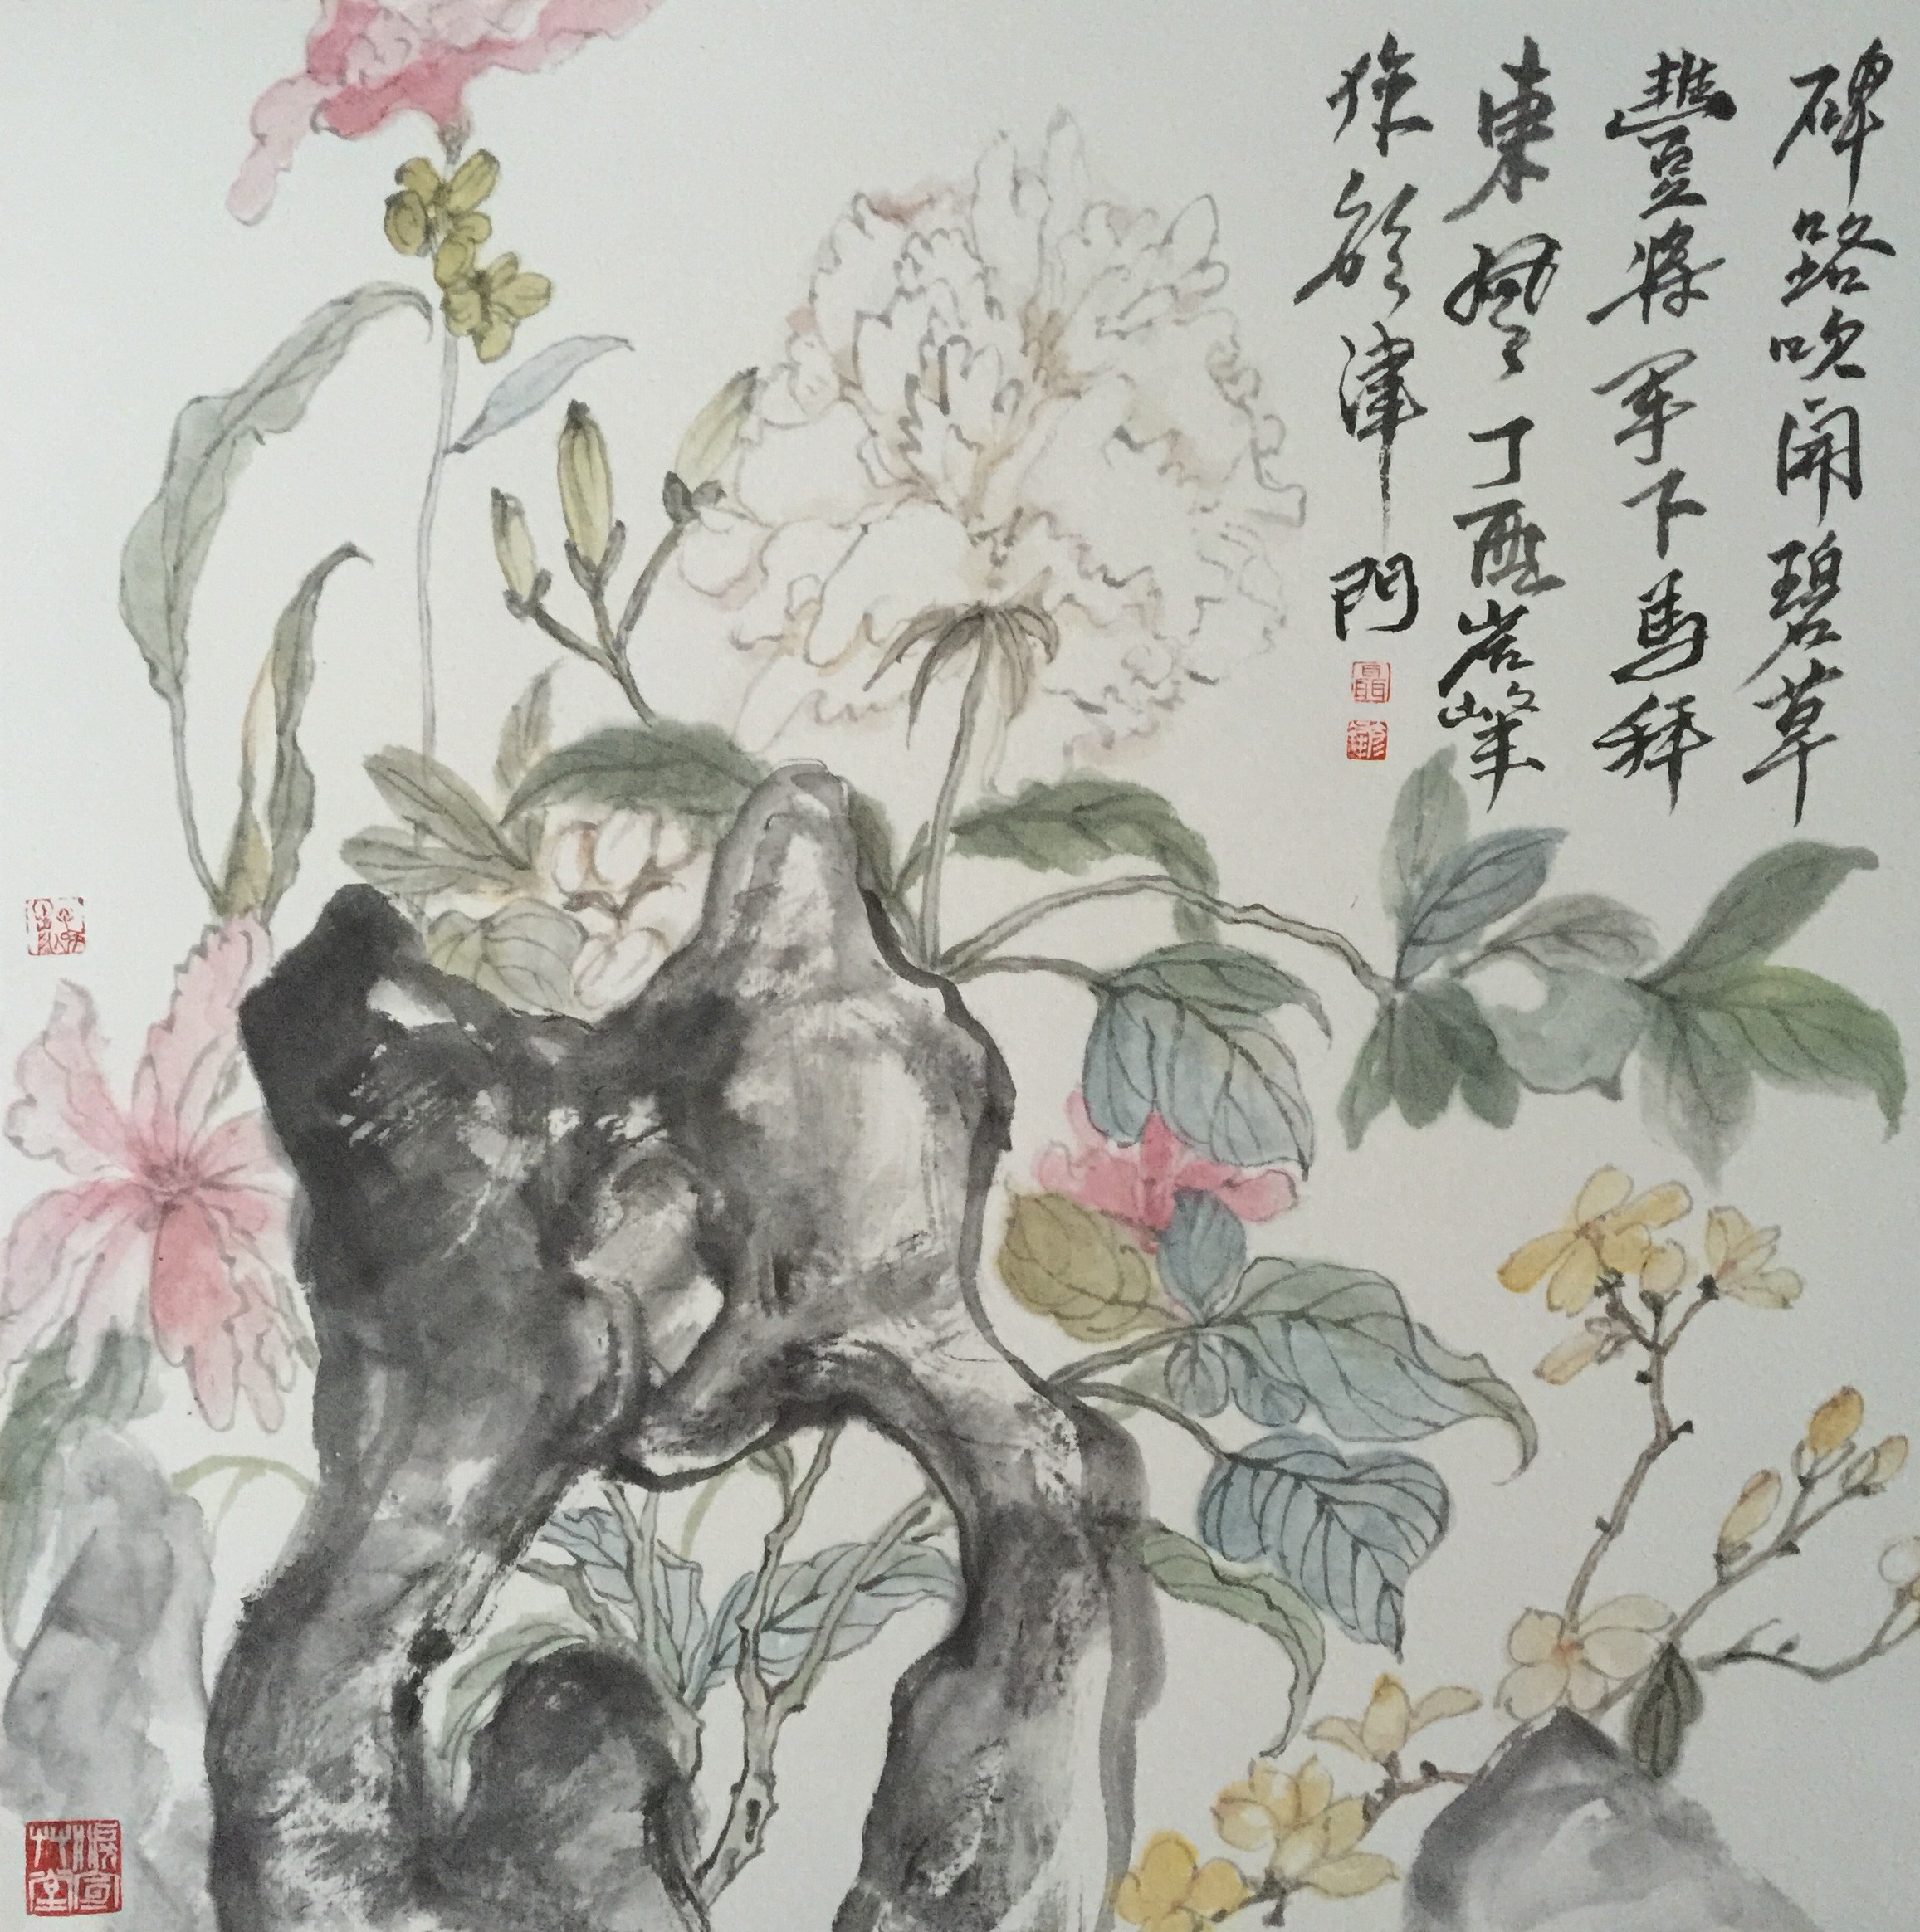 碑路吹開碧草
豐將軍下馬拜
東風丁酉岩峰
涂於津門